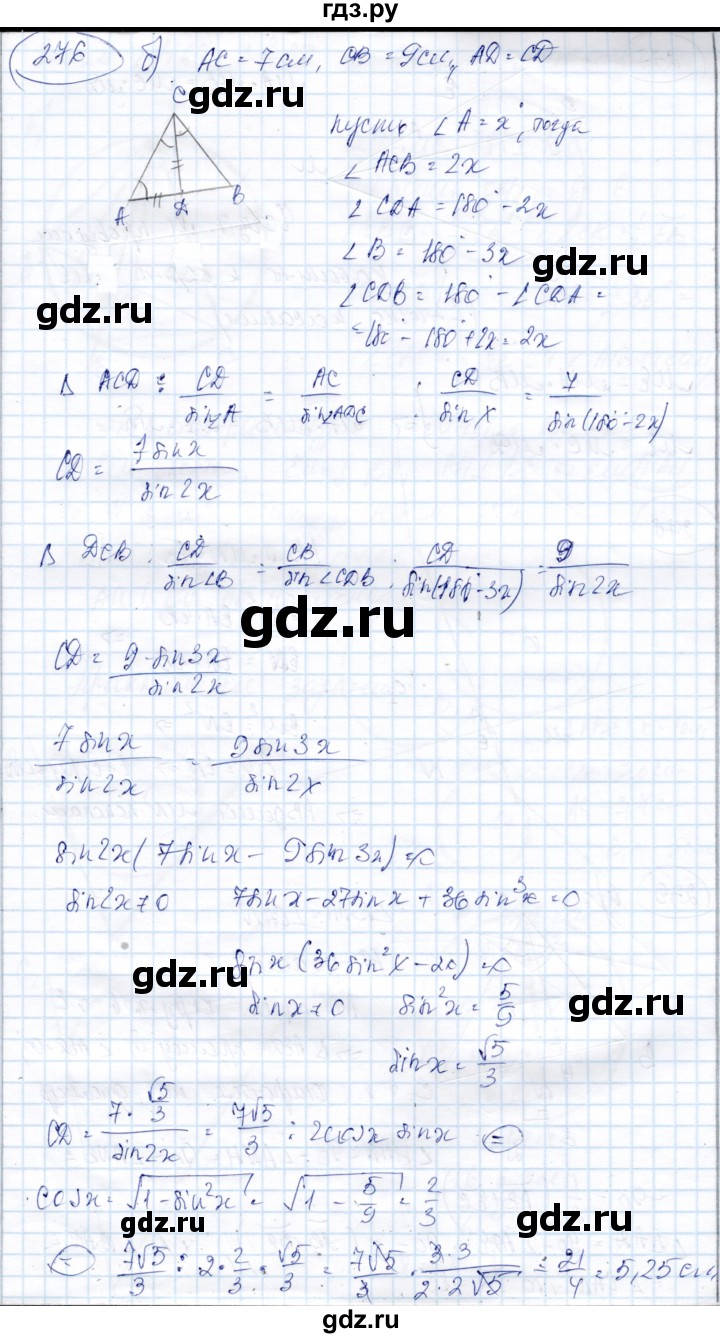 гдз.ру
276 б) AC = 7 см, CB = 9 см, AD = CD
C
A D B
gdz.ru
пусть ∠A = x, тогда
∠ACB = 2x
∠CDA = 180° - 2x
gdz.ru
∠B = 180° - 3x
∠CDB = 180° - ∠CDA =
gdz.ru
= 180° - 180° + 2x = 2x
Δ ACD : CD/sin∠A = AC/sin∠ADC ; CD/sin x = 7/sin(180° - 2x)
CD = 7 sin x / sin 2x
gdz.ru
Δ DCB : CD/sin∠B = CB/sin∠CDB ; CD/sin(180° - 3x) = 9/sin 2x
gdz.ru
CD = 9·sin 3x / sin 2x
7 sin x / sin 2x = 9 sin 3x / sin 2x
gdz.ru
sin 2x (7 sin x - 9 sin 3x) = 0
sin 2x ≠ 0 7 sin x - 27 sin x + 36 sin³x = 0
gdz.ru
sin x (36 sin²x - 20) = 0
gdz.ru
sin x ≠ 0 sin²x = 5/9
sin x = √5/3
CD = 7·√5/3 / sin 2x = 7√5/3 : 2 cos x sin x =
cos x = √1 - sin²x = √1 - 5/9 = 2/3
gdz.ru
= 7√5/3 : 2·2/3·√5/3 = 7√5/3 · 3·3/2·2√5 = 21/4 = 5,25 см
gdz.ru
gdz.ru